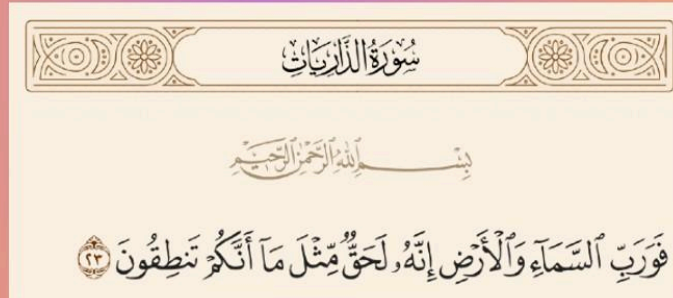 سُورَةُ الذَّارِيَاتِ
بِسْمِ ٱللَّهِ ٱلرَّحْمَٰنِ ٱلرَّحِيمِ
فَوَرَبِّ ٱلسَّمَآءِ وَٱلْأَرْضِ إِنَّهُۥ لَحَقٌّ مِّثْلَ مَآ أَنَّكُمْ تَنطِقُونَ ٢٣